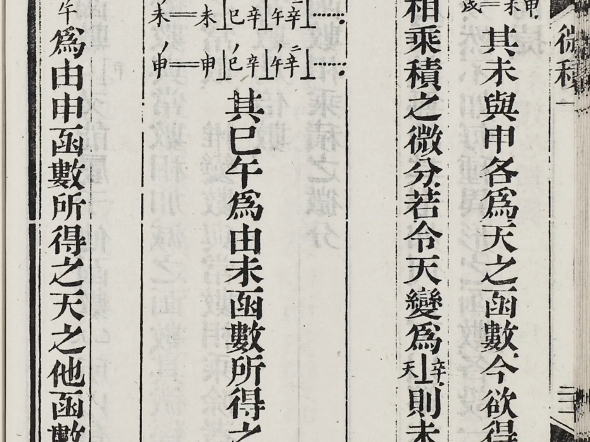 微積一
三
其未與申各爲天之函數今欲得
相乘積之微分若令天變爲天⊥辛則未
未′=未⊥巳辛⊥午辛二⊥……
申′=申⊥巳′辛⊥午′辛二⊥……
其巳午爲由未函數所得之
午′爲由申函數所得之天之他函數